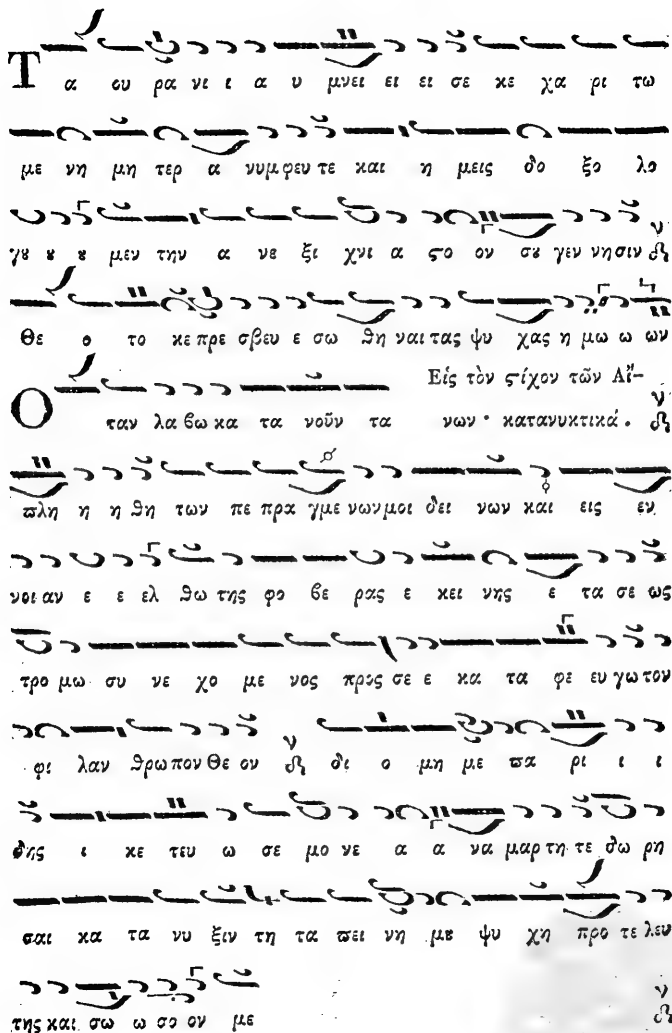 Τα ου ρα νι ι α υ μνει ει ει σε κε χα ρι τω
με νη μη τερ α νυμφευ τε και η μεις δο ξο λο
γȣ ȣ ȣ μεν την α νε ξι χνι α ϛο ον σȣ γεν νησιν
Θε ο το κε πρε σβευ ε σω ϑη ναι τας ψυ χας η μω ω ων
Εἰς τὸν ϛίχον τῶν Αἴ-
Ο ταν λα βω κα τα νοῦν τα νων · κατανυκτικά .
ϖλη η η ϑη των πε πρα γμε νων μοι δει νων και εις εν
νοι αν ε ε ελ ϑω της φο βε ρας ε κει νης ε τα σε ως
τρο μω συ νε χο με νος προς σε ε κα τα φε ευ γω τον
φι λαν ϑρωπον Θε ον δι ο μη με ϖα ρι ι ι
δης ι κε τευ ω σε μο νε α α να μαρ τη τε δω ρη
σαι κα τα νυ ξιν τη τα ϖει νη μȣ ψυ χη προ τε λευ
της και σω ω σο ον με